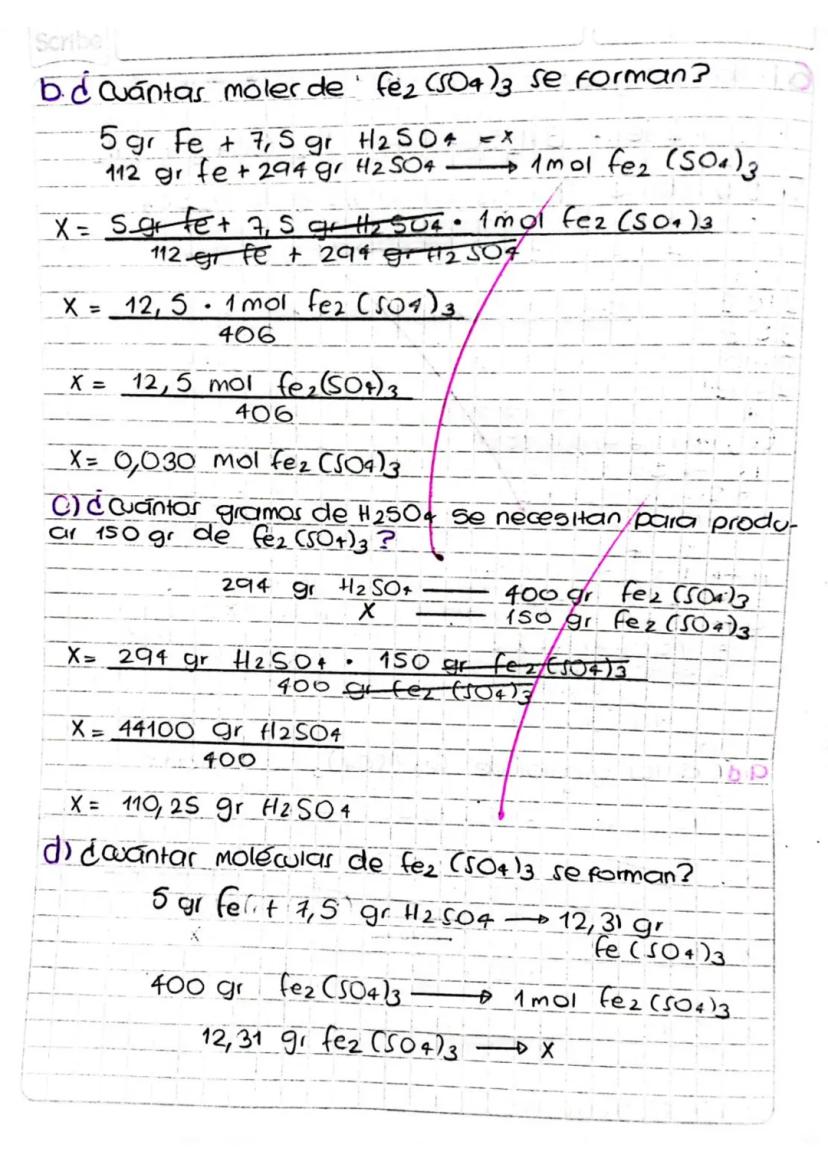 Scribe
b. ¿Cuántas moles de Fe2(SO4)3 se forman?
5 gr Fe + 7,5 gr H2SO4 = x
112 gr fe + 294 gr H2SO4 → 1mol fe2 (SO4)3
X = 5 gr fe + 7,5 gr H2SO4 · 1mol fe2 (SO4)3
112 gr fe + 294 gr H2SO4
X = 12,5 · 1mol fe2 (SO4)3
406
X = 12,5 mol fe2(SO4)3
406
X = 0,030 mol fe2 (SO4)3
C) ¿Cuántos gramos de H2SO4 se necesitan para produ-
cir 150 gr de fe2 (SO4)3?
294 gr H2SO4 — 400 gr fe2 (SO4)3
X — 150 gr fe2 (SO4)3
X = 294 gr H2SO4 · 150 gr fe2 (SO4)3
400 gr fe2 (SO4)3
X = 44100 gr H2SO4
400
X = 110,25 gr H2SO4
d) ¿Cuántas moléculas de fe2 (SO4)3 se forman?
5 gr fe + 7,5 gr H2SO4 → 12,31 gr
fe (SO4)3
400 gr fe2 (SO4)3 → 1mol fe2 (SO4)3
12,31 gr fe2 (SO4)3 → X